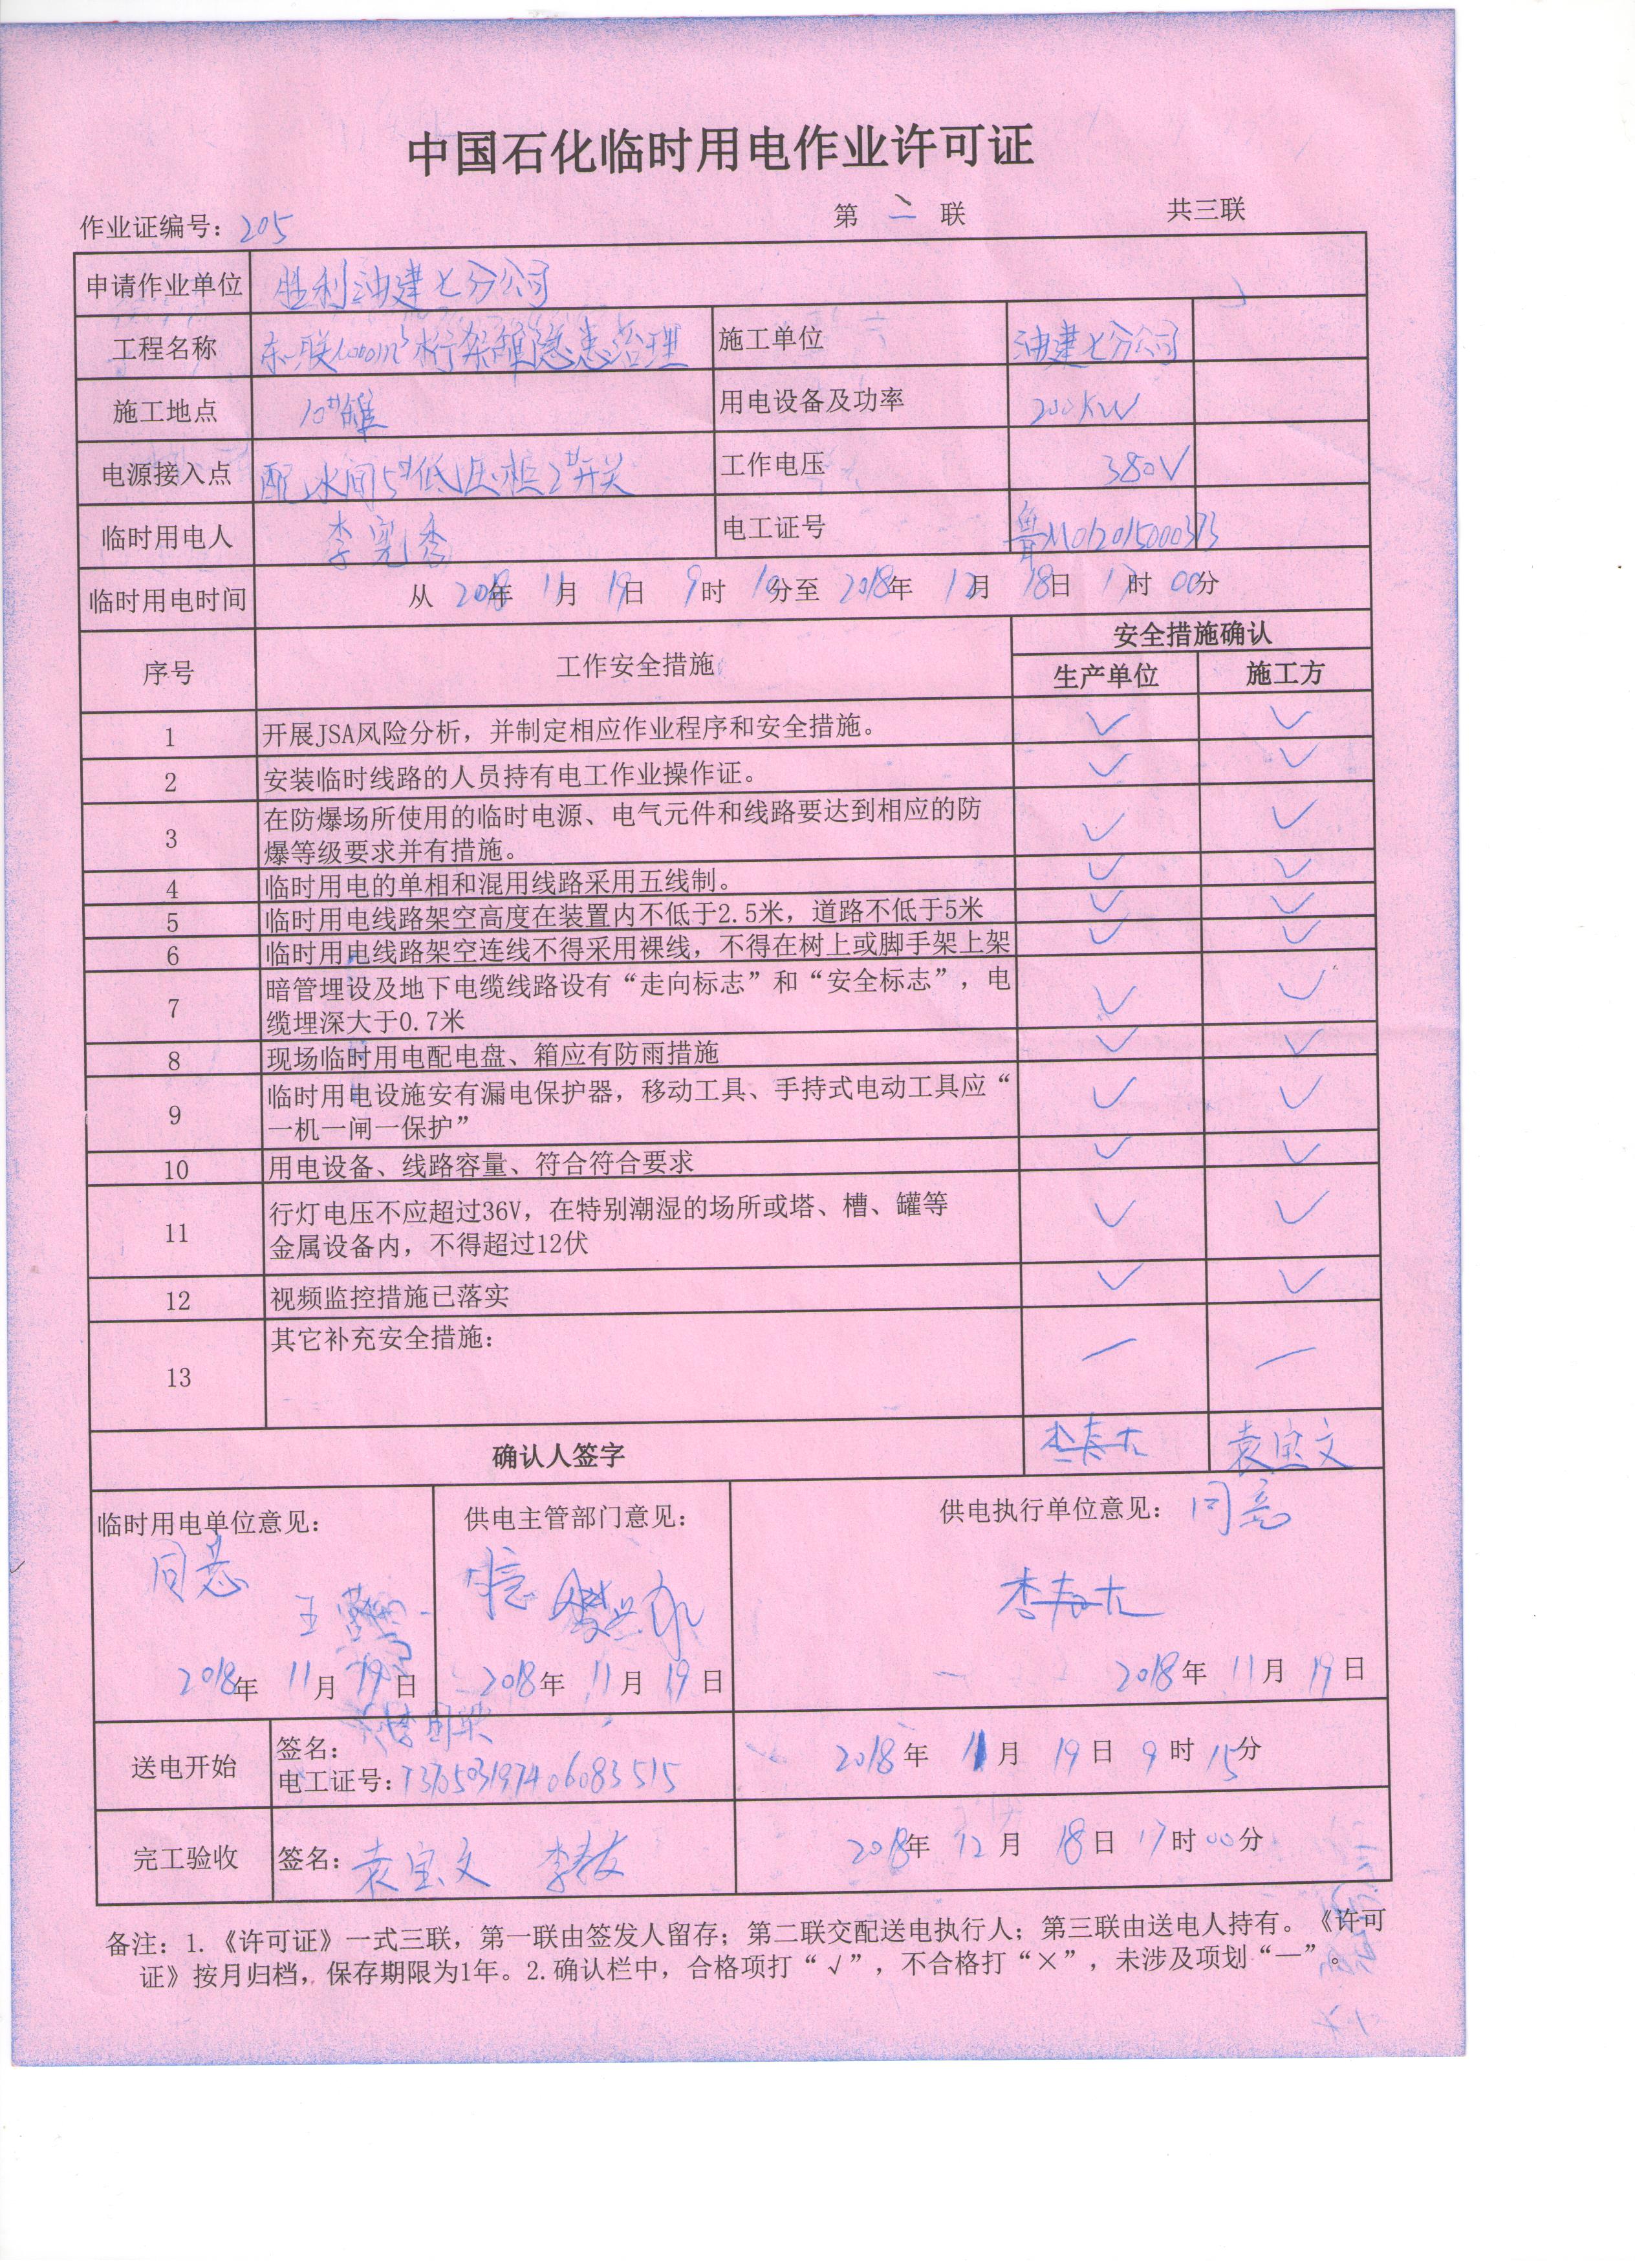 中国石化临时用电作业许可证
作业证编号：205 第二联 共三联
申请作业单位 胜利油建七分公司
工程名称 东联1000m³桁架罐隐患治理 施工单位 油建七分公司
施工地点 10#罐 用电设备及功率 200KW
电源接入点 配水间5#低压柜2#开关 工作电压 380V
临时用电人 李宪秀 电工证号 鲁M012015000373
临时用电时间 从 2018年 11月 19日 9时 10分至 2018年 12月 18日 17时 00分
序号 工作安全措施 安全措施确认
生产单位 施工方
1 开展JSA风险分析，并制定相应作业程序和安全措施。 ✓ ✓
2 安装临时线路的人员持有电工作业操作证。 ✓ ✓
3 在防爆场所使用的临时电源、电气元件和线路要达到相应的防 ✓ ✓
爆等级要求并有措施。
4 临时用电的单相和混用线路采用五线制。 ✓ ✓
5 临时用电线路架空高度在装置内不低于2.5米，道路不低于5米 ✓ ✓
6 临时用电线路架空连线不得采用裸线，不得在树上或脚手架上架 ✓ ✓
7 暗管埋设及地下电缆线路设有“走向标志”和“安全标志”，电 ✓ ✓
缆埋深大于0.7米
8 现场临时用电配电盘、箱应有防雨措施 ✓ ✓
9 临时用电设施安有漏电保护器，移动工具、手持式电动工具应“ ✓ ✓
一机一闸一保护”
10 用电设备、线路容量、符合符合要求 ✓ ✓
11 行灯电压不应超过36V，在特别潮湿的场所或塔、槽、罐等 ✓ ✓
金属设备内，不得超过12伏
12 视频监控措施已落实 ✓ ✓
13 其它补充安全措施： — —
确认人签字 袁宝文
临时用电单位意见： 供电主管部门意见： 供电执行单位意见：同意
同意 同意
2018年 11月 19日 2018年 11月 19日 2018年 11月 19日
送电开始 签名： 2018年 11月 19日 9时 15分
电工证号：T370503197406083515
完工验收 签名：袁宝文 2018年 12月 18日 17时 00分
备注：1.《许可证》一式三联，第一联由签发人留存；第二联交配送电执行人；第三联由送电人持有。《许可
证》按月归档，保存期限为1年。2.确认栏中，合格项打“√”，不合格打“×”，未涉及项划“—”。